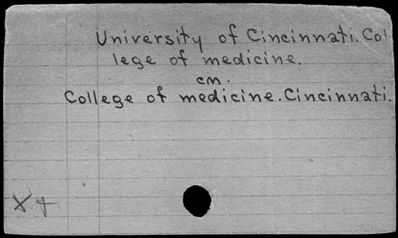 University of Cincinnati. Col
lege of medicine.
cm.
College of medicine. Cincinnati.